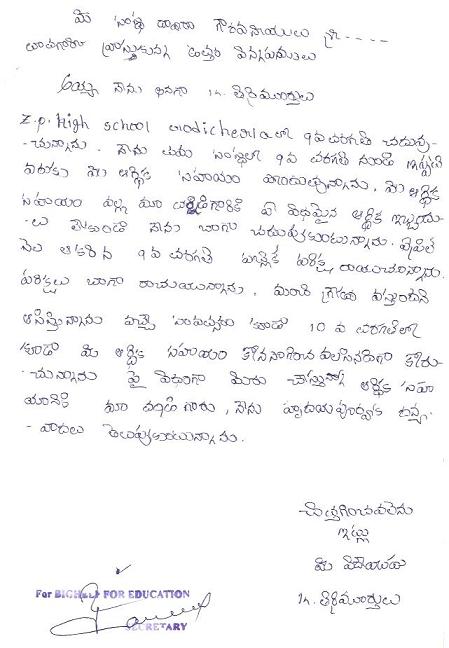 మీ సంస్థ ద్వారా గౌరవనీయులు శ్రీ ----
వ్రాసుకున్న ఉత్తర విన్నపములు
అయ్యా నేను అనగా K. తిరిమూర్తులు
Z.p. High school లో 9వ తరగతి చదువు-
-చున్నాను. నేను మీ సంస్థలో 9 వ తరగతి నుండి ఇప్పటి
వరకు మీ ఆర్థిక సహాయం పొందుతున్నాను, మీ ఆర్థిక
సహాయం వల్ల మా తల్లిదండ్రి గారికి ఏ విధమైన ఆర్థిక ఇబ్బందు-
-లు లేకుండా నేను బాగా చదువుకుంటున్నాను. ఏప్రిల్
నెల ఆఖరిన 9 వ తరగతి పబ్లిక్ పరీక్ష రాయుచున్నాను.
పరీక్షలు బాగా రాయుచున్నాను, మంచి గ్రేడు వస్తుందని
ఆశిస్తున్నాను వచ్చే సంవత్సరం కూడా 10 వ తరగతిలో
కూడా మీ ఆర్థిక సహాయం కొనసాగించవలసినదిగా కోరు-
-చున్నాను పై విధంగా మీరు చేస్తున్న ఆర్థిక సహా
యానికి మా గారు, నేను హృదయపూర్వక ధన్య-
-వాదలు తెలుపుకుంటున్నాను.
చిత్తగించవలెను
ఇట్లు
మీ విధేయుడు
K. తిరిమూర్తులు
For BIGHELP FOR EDUCATION
SECRETARY